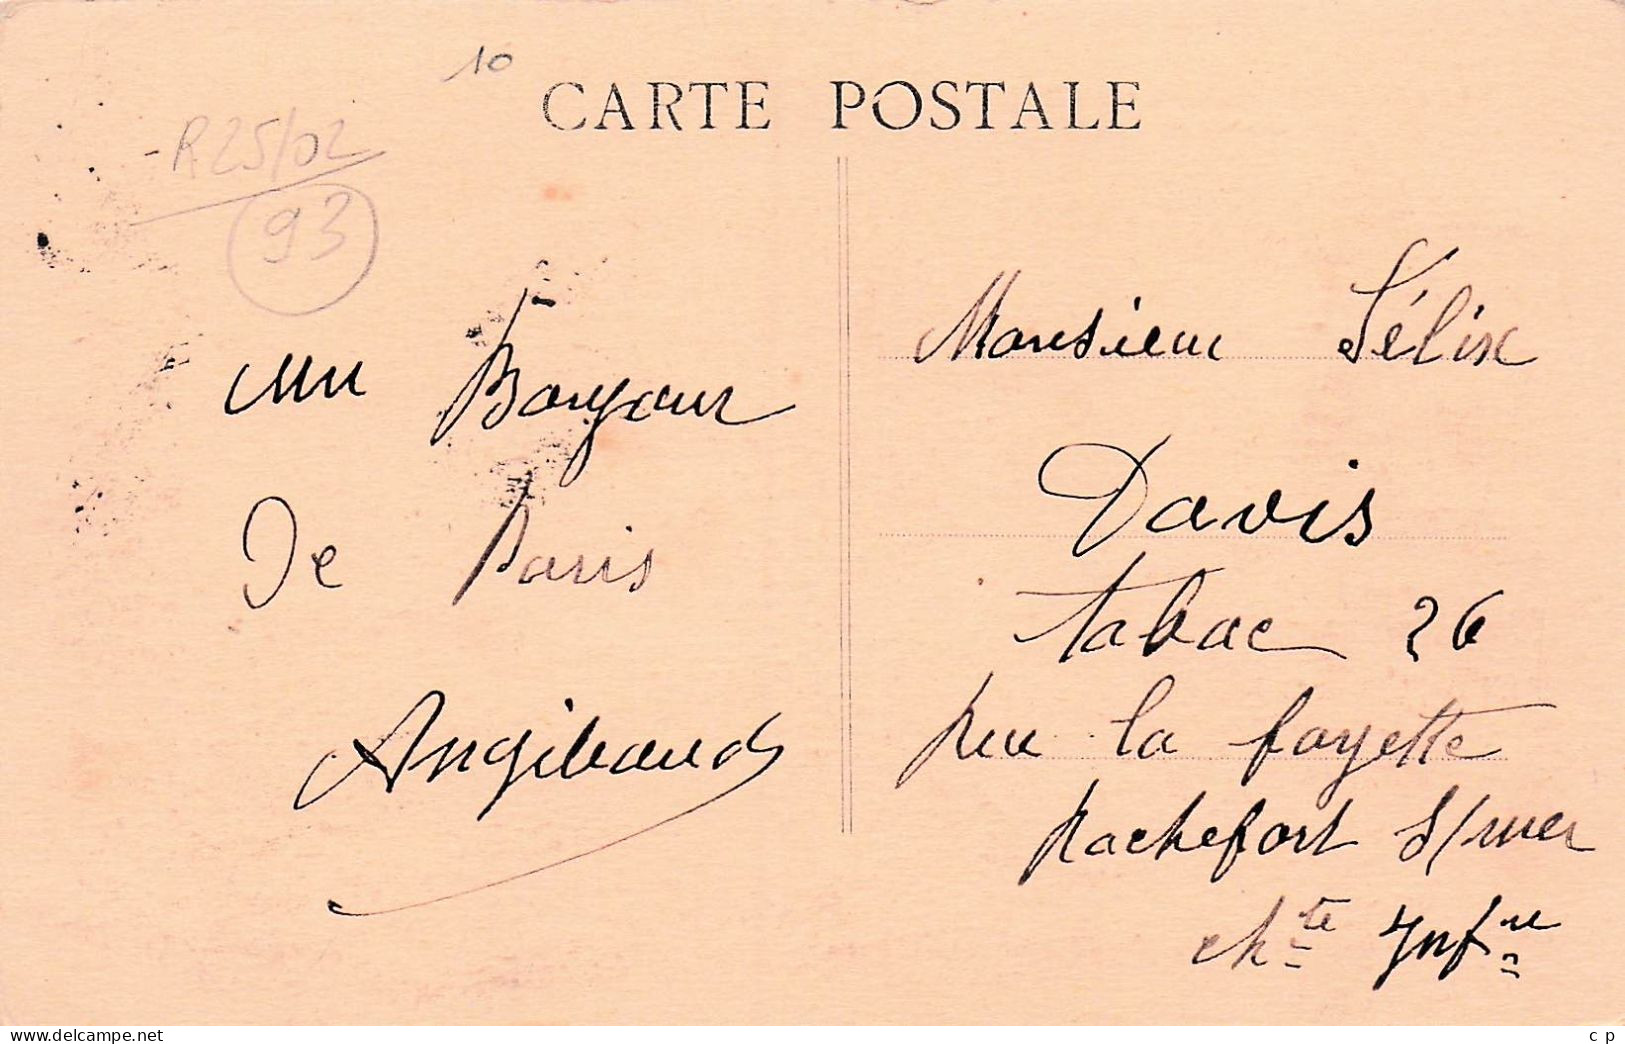 10
CARTE POSTALE
R25/02
93
un Bonjour
De Paris
Angibaud
Monsieur Félix
Davis
tabac 26
Rue la fayette
Rochefort s/mer
chte Infre
www.delcampe.net
c p